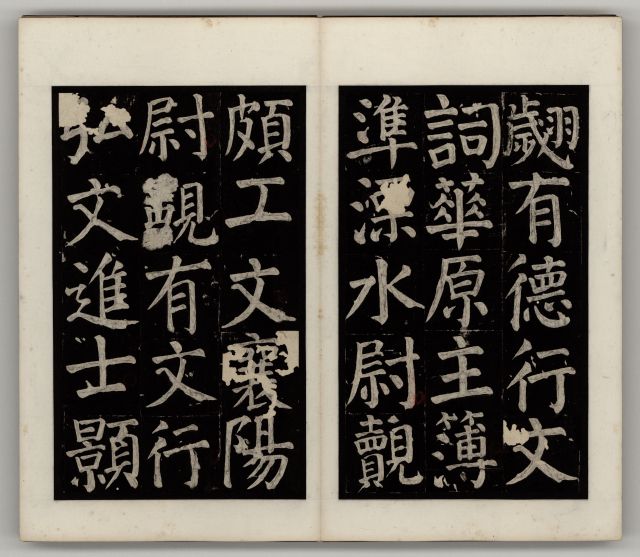 翽有德行文
詞華原主簿
準溧水尉覿
頗工文襄陽
尉覬有文行
弘文進士顥